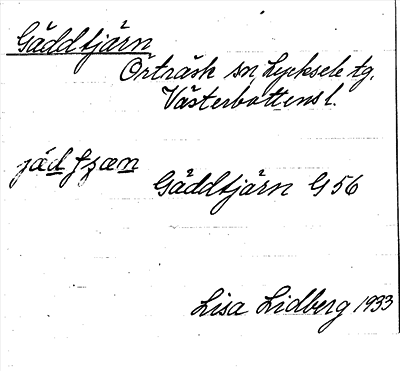 Gäddtjärn
Örträsk sn, Lycksele tg.
Västerbottens l.
jäd fzæn
Gäddtjärn G 56
Lisa Lidberg 1933